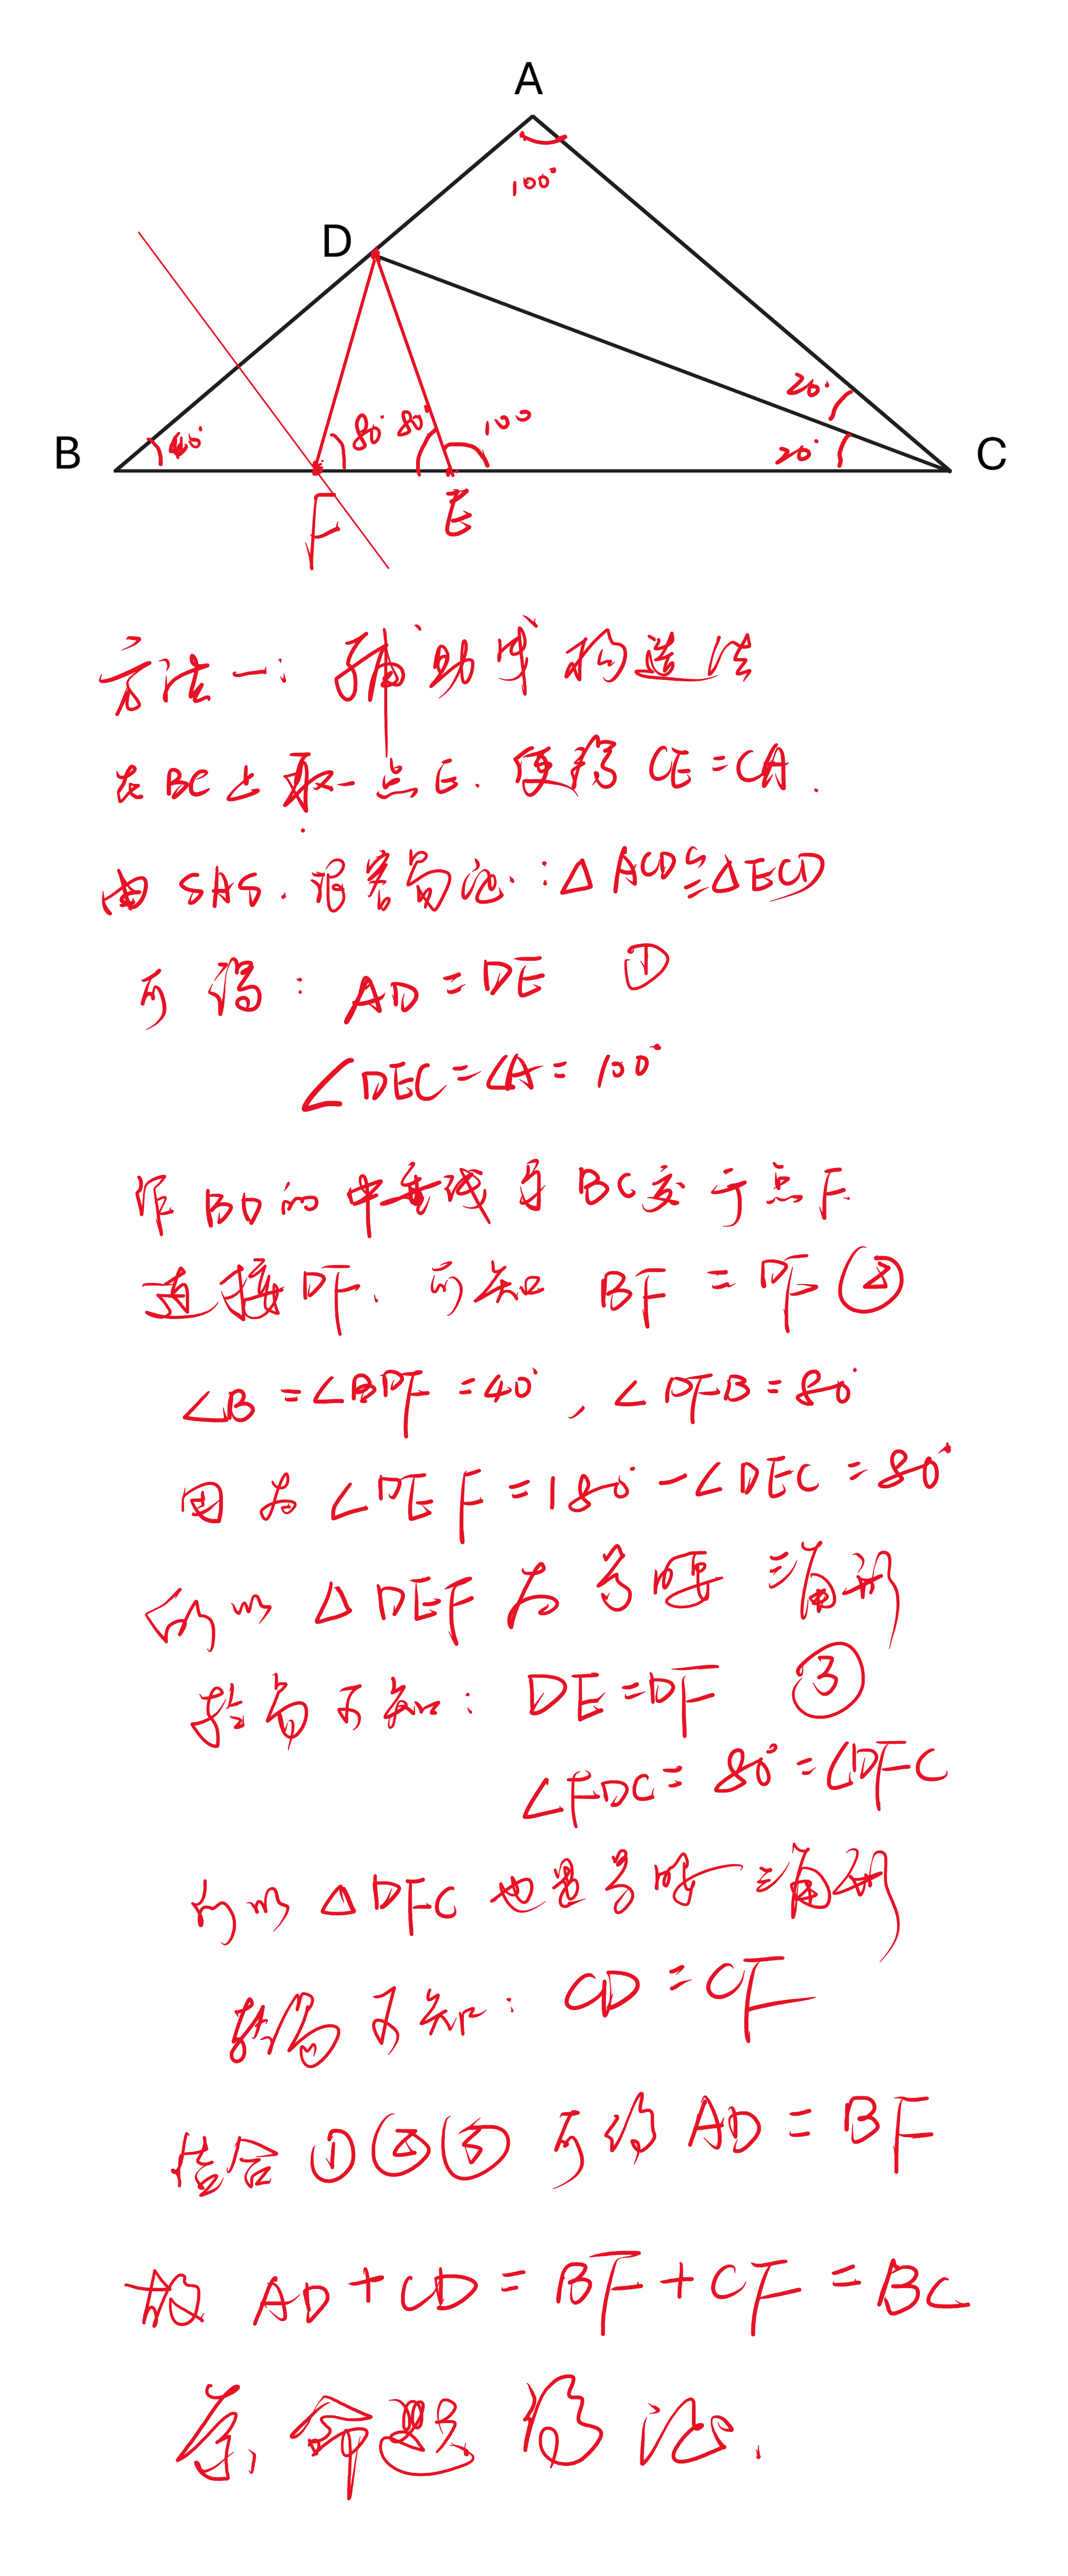 A
100°
D
20°
80° 80° 100
B
40°
20°
C
F
E
方法一: 辅助线构造法
在BC上取一点E. 使得 CE=CA.
由 SAS. 很容易证: △ACD≌△ECD
可得: AD=DE ①
∠DEC=∠A=100°
作BD的中垂线与BC交于点F.
连接DF. 可知 BF=DF ②
∠B=∠BDF=40°, ∠DFB=80°
因为 ∠DEF=180°-∠DEC=80°
所以 △DEF为等腰三角形
轻易可知: DE=DF ③
∠FDC=80°=∠DFC
所以 △DFC也是等腰三角形
轻易可知: CD=CF
结合①②③可得 AD=BF
故 AD+CD=BF+CF=BC
原命题得证.